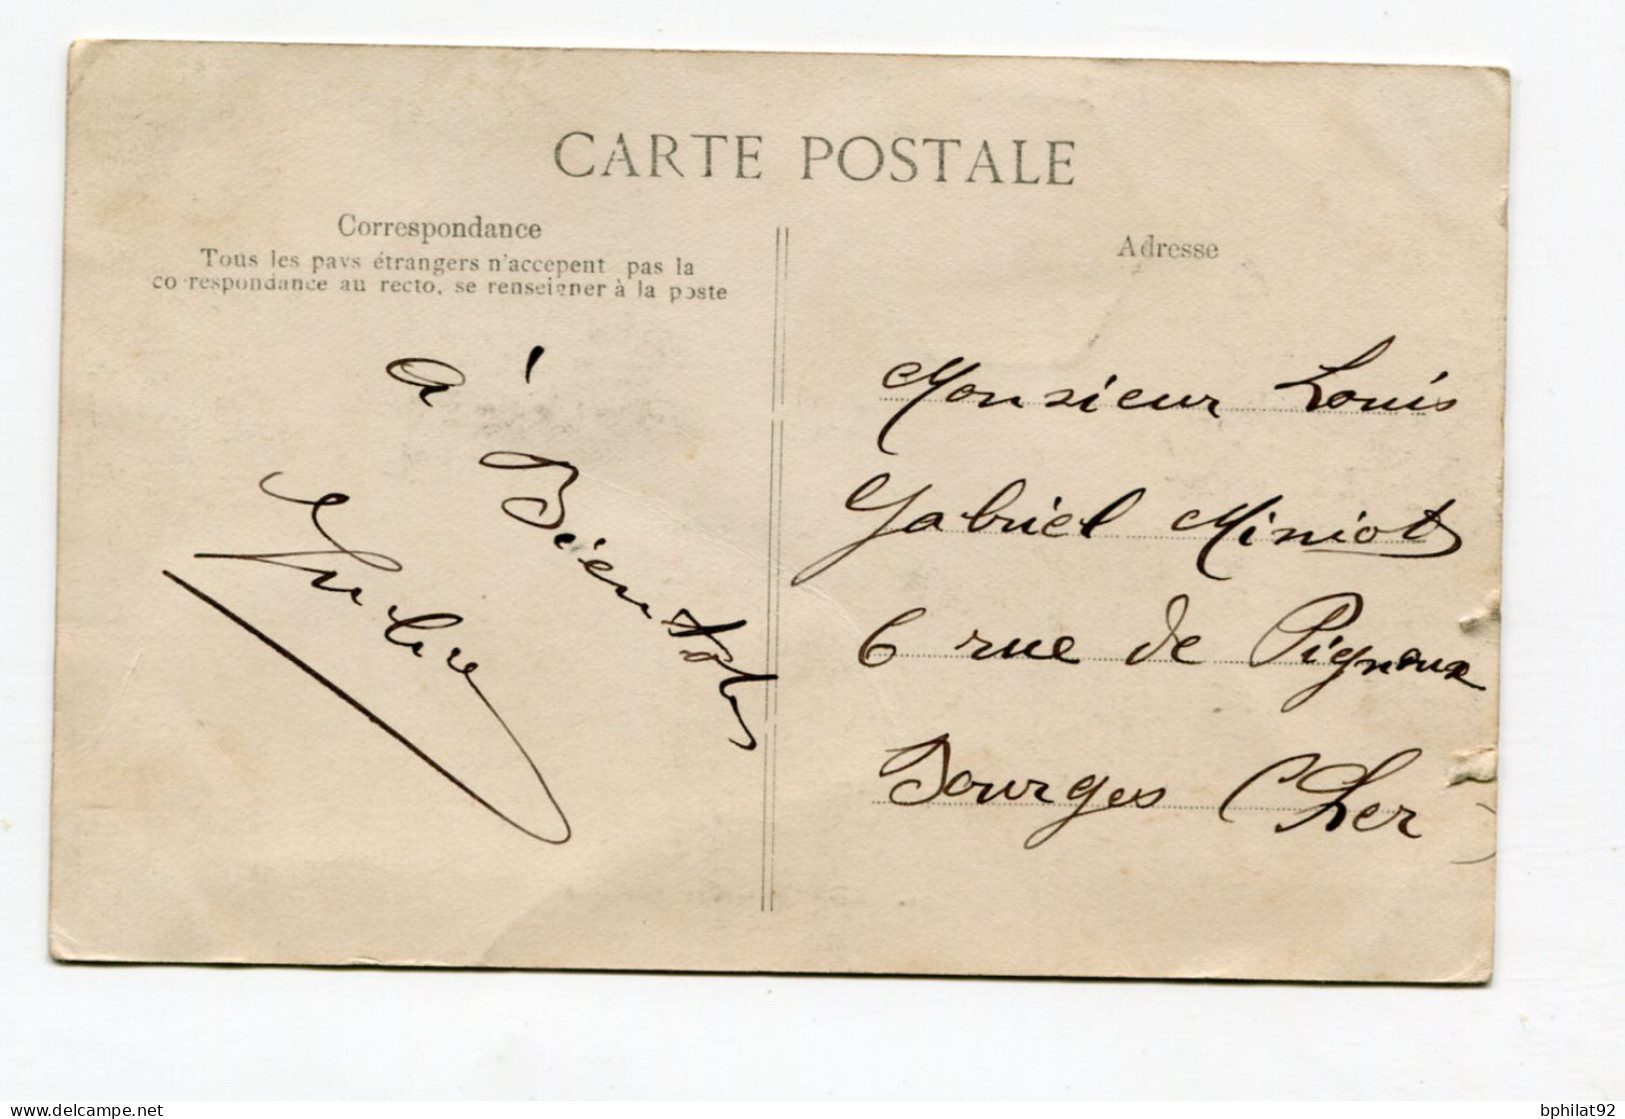 CARTE POSTALE
Correspondance
Tous les pays étrangers n'accepent pas la
correspondance au recto, se renseigner à la poste
à
Bientot
Adresse
Monsieur Louis
Gabriel Miniot
6 rue de Pignoux
Bourges (Cher)
bphilat92